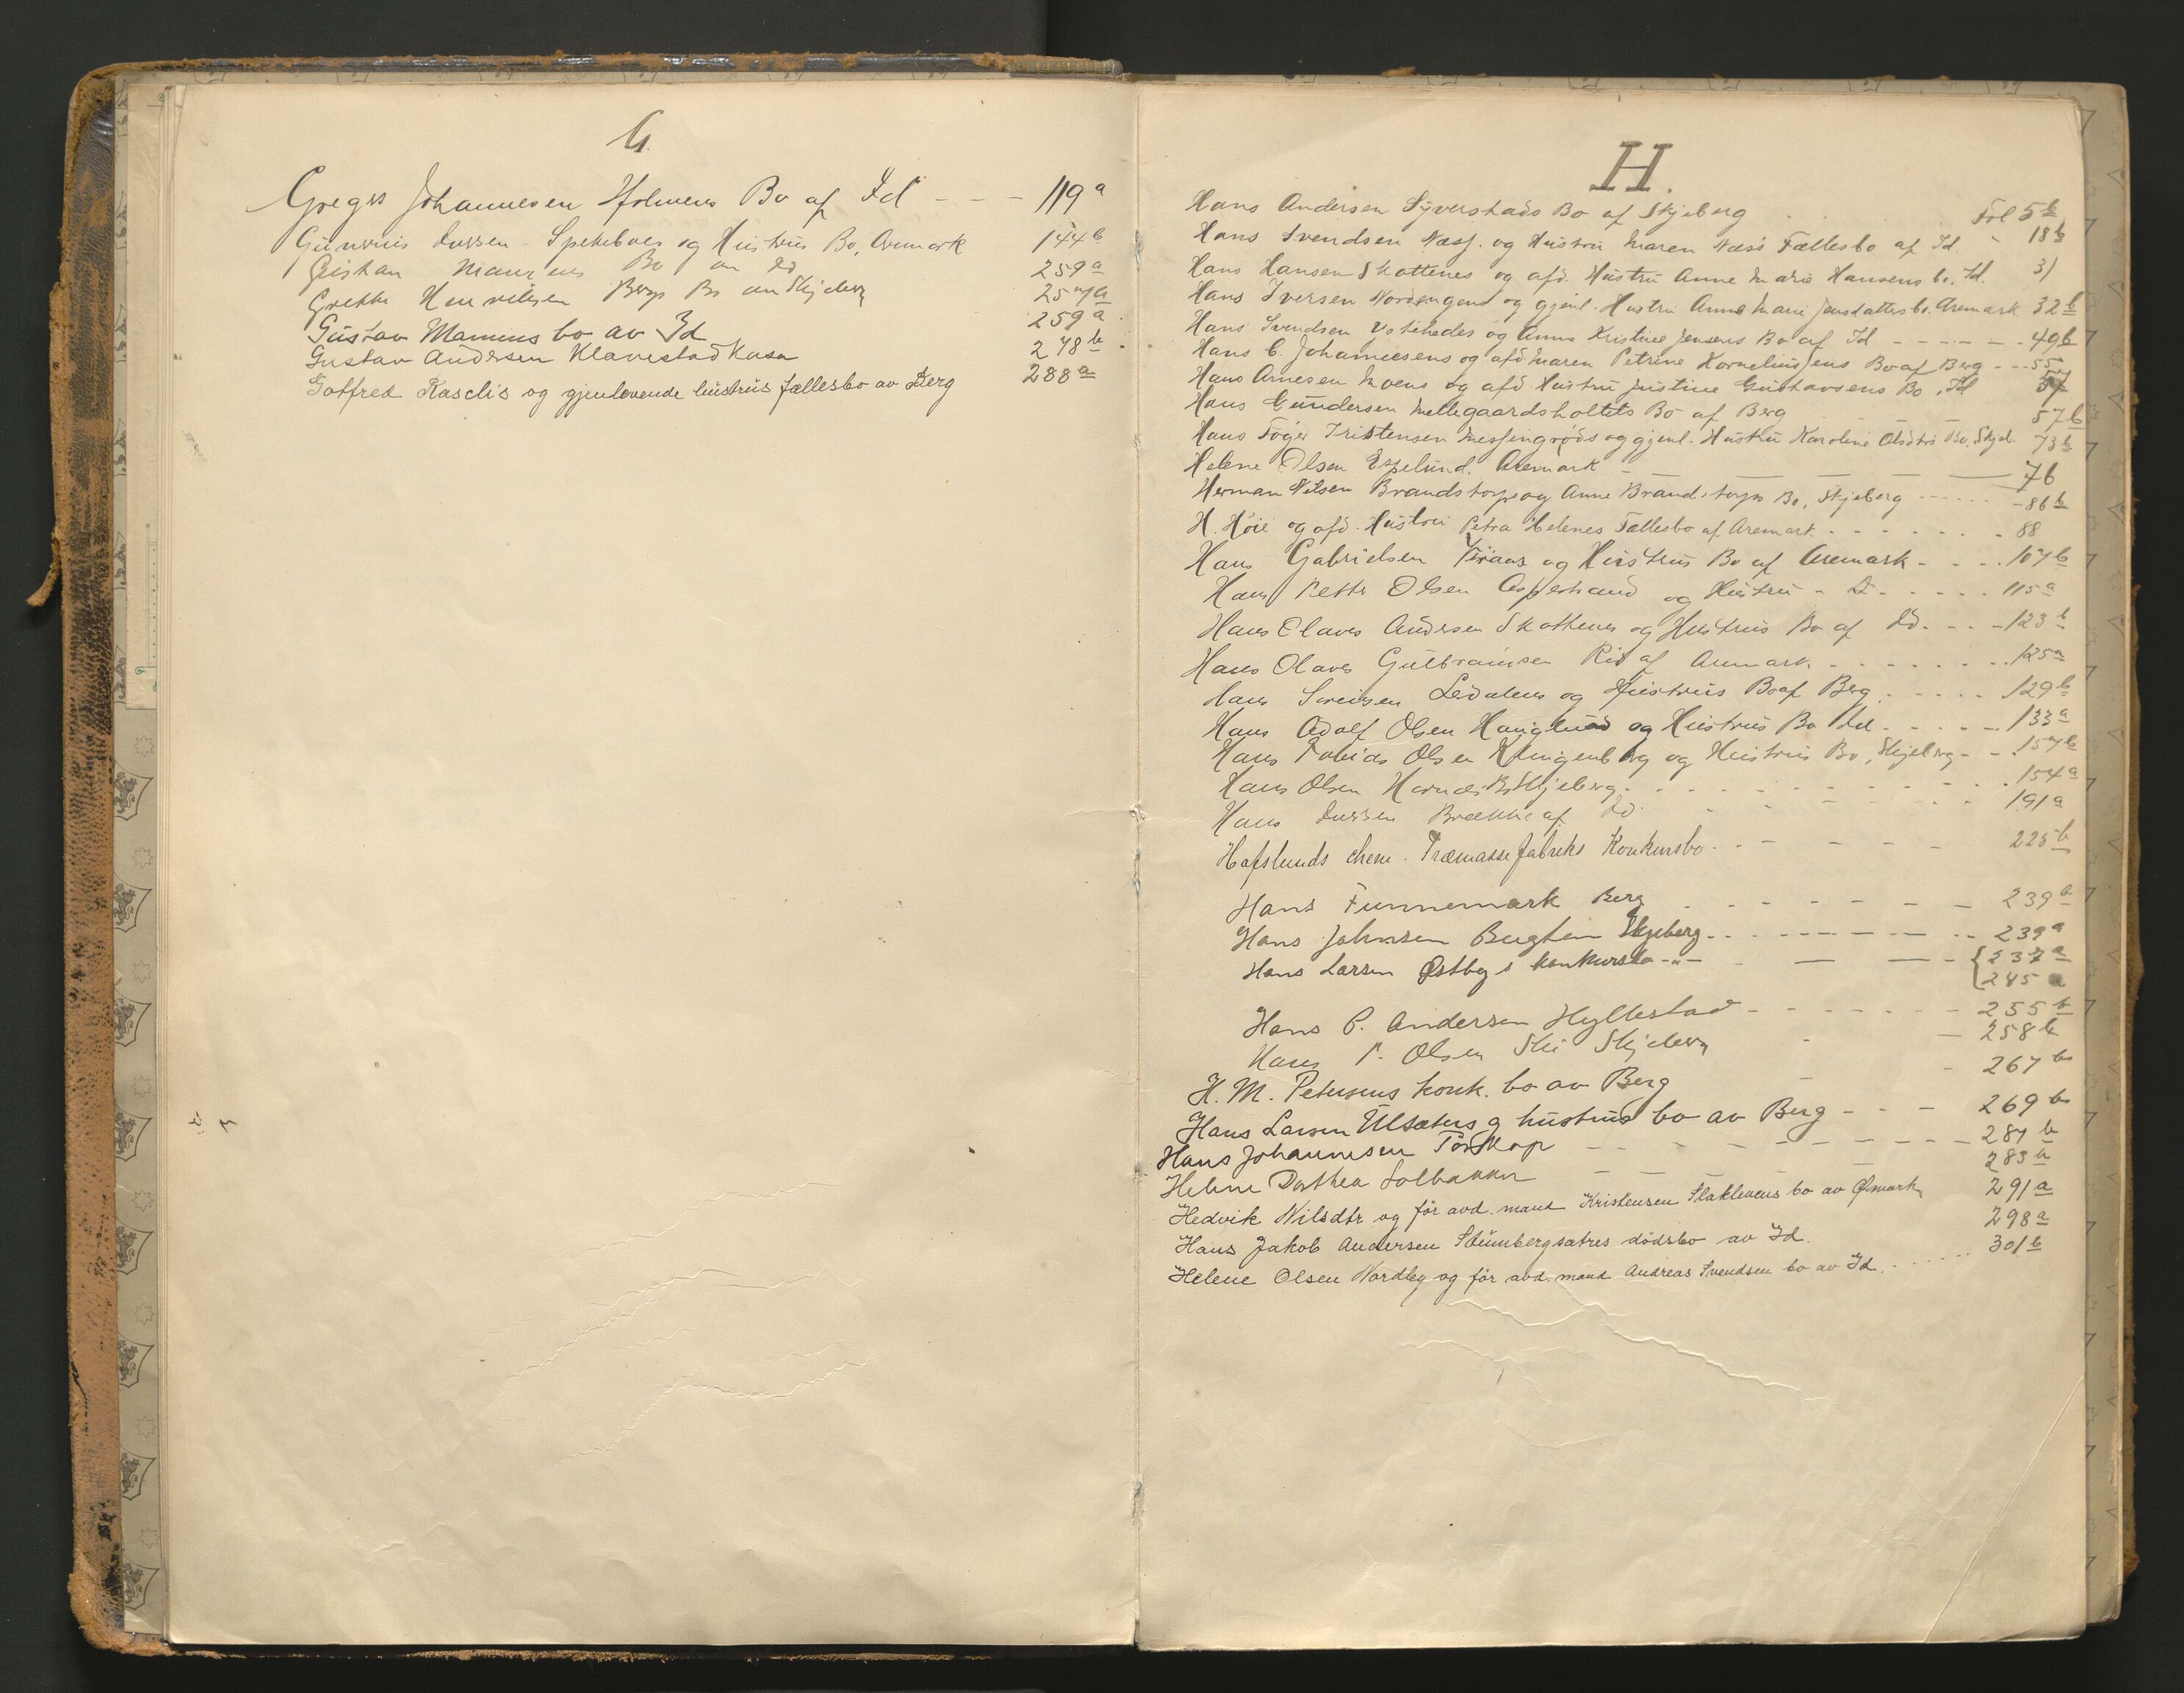 G.
Greges Johannesen Holmens Bo af Id - - - 119 a
Gunerius Larsen Spekeboes og Hustrus Bo, Aremark 144 b
Gustav Mamens Bo av Id 259 a
Grethe Henriksen Bergs Bo av Skjeberg 257 a
Gustav Mamens bo av Id 259 a
Gustav Andersen Klavestadkasa 278 b
Gotfred Rasclis og gjenlevende hustrus fællesbo av Berg 288 a
H.
Hans Andersen Syverstads Bo af Skjeberg Fol 5 b
Hans Svendsen Næss. og Hustru Maren Næss Fællesbo af Id. 18 b
Hans Hansen Skottenes og afd. Hustru Anne Marie Hansens bo. Id. 31
Hans Iversen Nordengens og gjenl. Hustru Anne Marie Jensdatters bo. Aremark 32 b
Hans Svendsen Ystehedes og Anna Kristine Jensens Bo af Id - - - - - 49 b
Hans C. Johannesens og afd Maren Petrine Korneliussens Bo af Berg - - 55
Hans Arnesen Moens og afd. Hustru Justine Gustavsens Bo, Id 57
Hans Gundersen Mellegaardsholtets Bo af Berg 57 b
Hans Föger Kristensen Messingröds og gjenl. Hustru Karoline Olsdtrs Bo, Skjeb. 73 b
Helene Olsen Espelund. Aremark 76
Herman Nilsen Brandstorps og Anne Brandstorps Bo, Skjeberg - 86 b
H. Höie og afd. Hustru Petra Helenes Fællesbo af Aremark 88
Hans Gabrielsen og Hustrus Bo af Aremark 107 b
Hans Petter Olsen Aspestrand og Hustru 115 a
Hans Olaves Andersen Skottenes og Hustrus Bo af Id. - - - 123 b
Hans Olaves Gulbransen af Aremark 125 a
Hans Sörensen og Hustrus Bo af Berg 129 b
Hans Adolf Olsen Hauglund og Hustrus Bo Id 133 a
Hans Tobias Olsen Klingenberg og Hustrus Bo, Skjeberg - - 157 b
Hans Olsen Hornæs Bo Skjeberg 154 a
Hans Larsen Brække af Id 191 a
Hafslunds chem. Træmassefabriks Konkursbo 225 b
Hans Funnemark Berg 239 a
Hans Johnsen Bugten Skjeberg 239 a
Hans Larsen Østbys konkursbo -"- { 237 a
245 a
Hans P. Andersen Hyllestad 255 b
Hans P. Olsen Ski Skjeberg 258 b
H. M. Petersens konk. bo av Berg 267 b
Hans Larsen Ulsæters og hustrus bo av Berg - - - 269 b
Hans Johannesen Torskop 287 b
Helene Dorthea Solbakken 283 b
Hedvik Nilsdtr og för avd. mand Kristensen Flaklevens bo av Øymark 291 a
Hans Jakob Andersen Stumbergsætres dödsbo av Id. 298 a
Helene Olsen Nordby og för avd. mand Andreas Svendsen bo av Id. 301 b